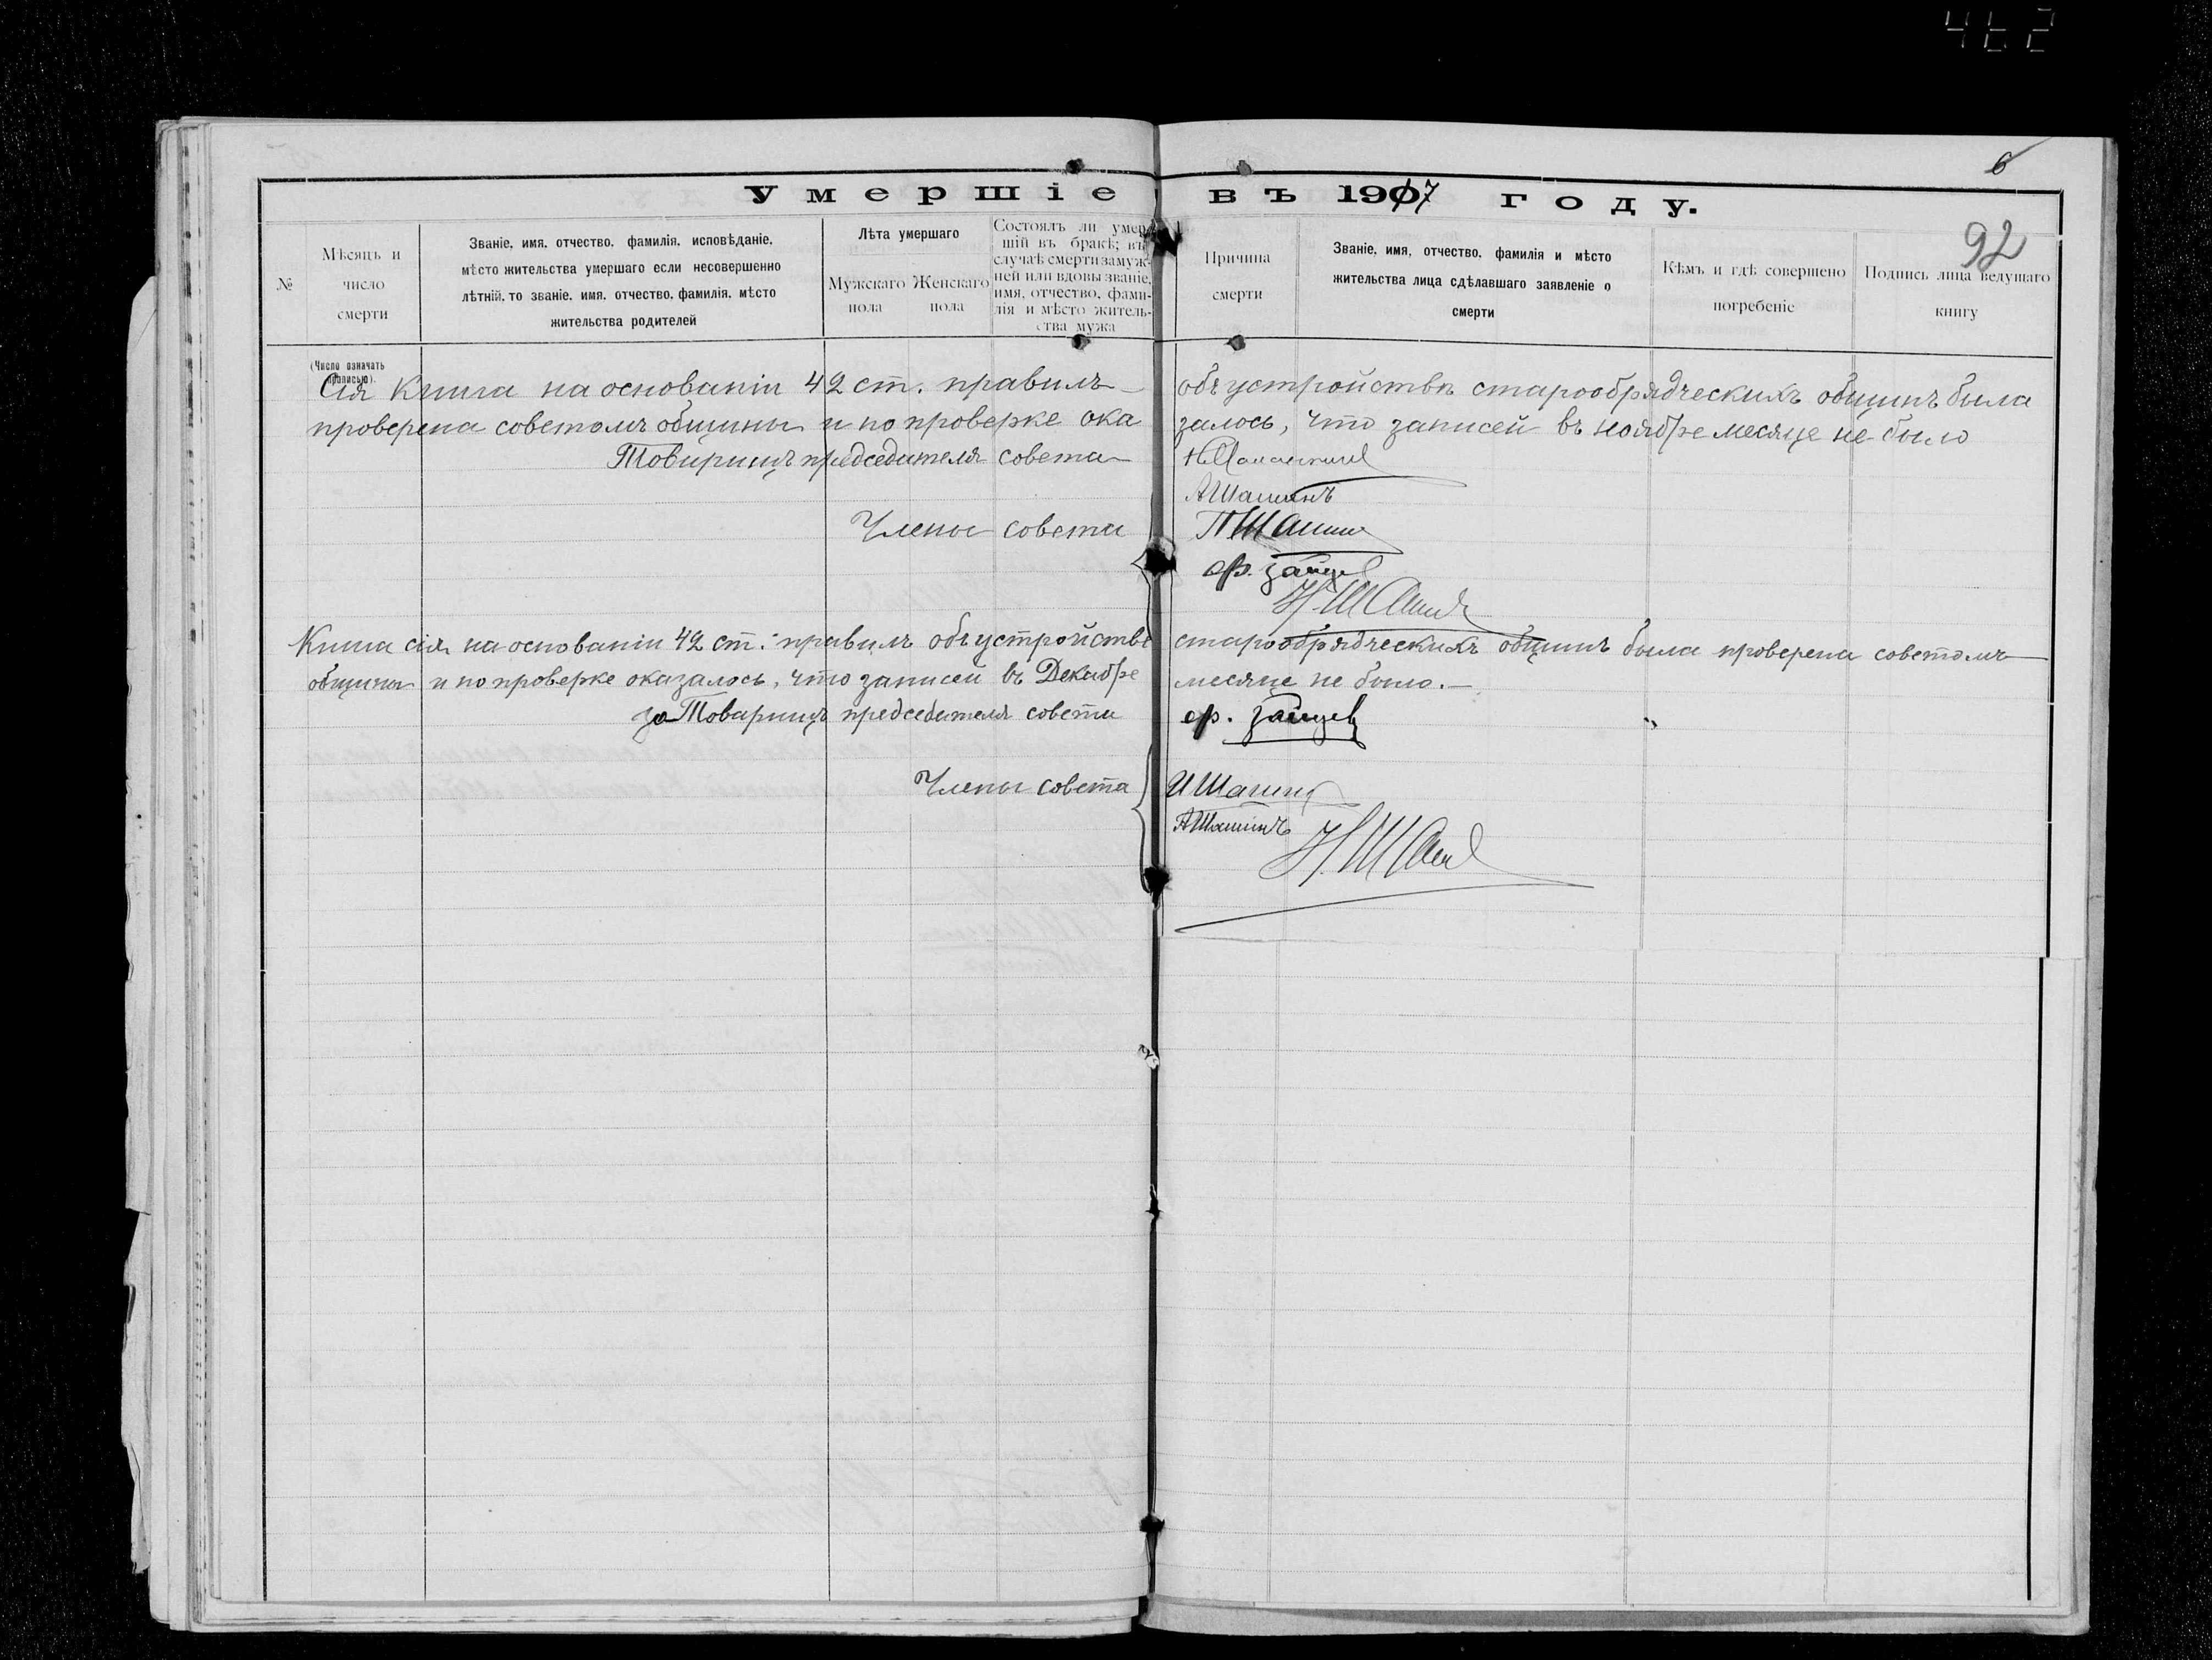 462
6
Умершіе въ 1917 году.
92
№
Мѣсяцъ и
число
смерти
Званіе, имя, отчество, фамилія, исповѣданіе,
мѣсто жительства умершаго если несовершенно
лѣтній, то званіе, имя, отчество, фамилія, мѣсто
жительства родителей
Лѣта умершаго
Мужскаго
пола
Женскаго
пола
Состоялъ ли умер-
шій въ бракѣ; въ
случаѣ смерти замуж-
ней или вдовы званіе,
имя, отчество, фами-
лія и мѣсто житель-
ства мужа
Причина
смерти
Званіе, имя, отчество, фамилія и мѣсто
жительства лица сдѣлавшаго заявленіе о
смерти
Кѣмъ и гдѣ совершено
погребеніе
Подпись лица ведущаго
книгу
(Число означать
прописью).
Сія книга на основаніи 42 ст. правилъ объ устройствѣ старообрядческихъ общинъ была
проверена советомъ общины и по проверке ока залось, что записей въ ноябре месяце не было
Товарищъ председателя совета
АШашинъ
Члены совета ПШашин
ф. Зайцев
Н.Шашин
Книга сія на основаніи 42 ст. правилъ объ устройстве старообрядческихъ общинъ была проверена советомъ
общины и по проверке оказалось, что записей въ Декабре месяце не было.—
за Товарищъ председателя совета ф. Зайцев
Члены совета ИШашин
АШашинъ
Н.Шаш